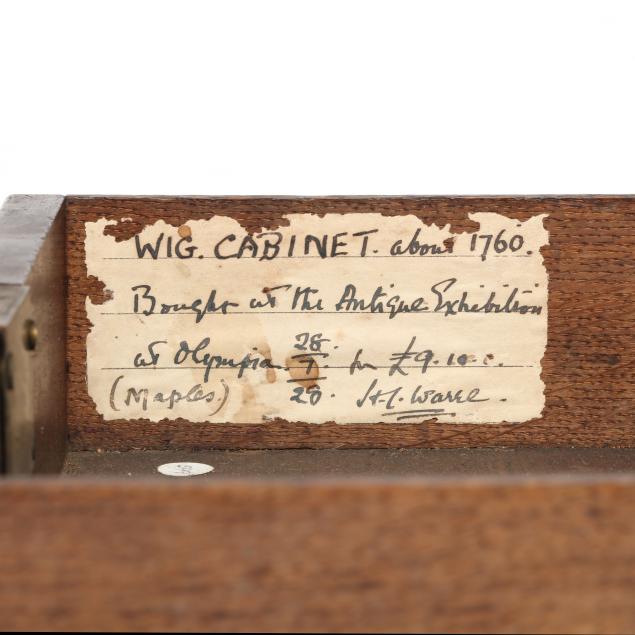 WIG. CABINET. about 1760.
Bought at the Antique Exhibition
at Olympia. 28. 7. 20. for £9.10.
(Maples.)